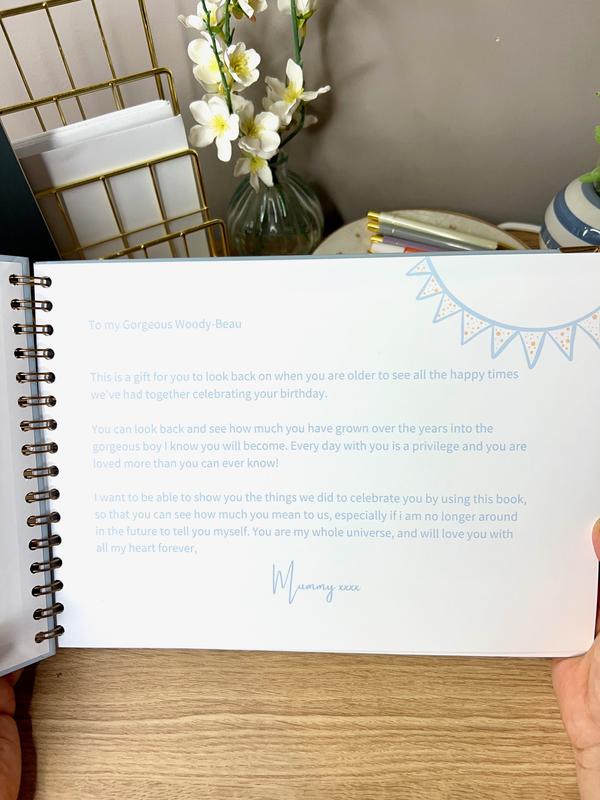 To my Gorgeous Woody-Beau
This is a gift for you to look back on when you are older to see all the happy times
we've had together celebrating your birthday.
You can look back and see how much you have grown over the years into the
gorgeous boy I know you will become. Every day with you is a privilege and you are
loved more than you can ever know!
I want to be able to show you the things we did to celebrate you by using this book,
so that you can see how much you mean to us, especially if i am no longer around
in the future to tell you myself. You are my whole universe, and will love you with
all my heart forever,
Mummy xxxx